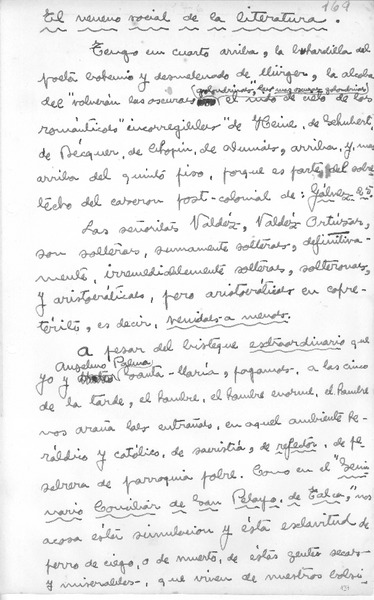 169
El veneno social de la literatura.
Tengo un cuarto arriba, la buhardilla del
poeta bohemio y desmelenado de Mürger, la alcoba
golondrinas, "las muy oscuras golondrinas
del "volverán las oscuras el nido de cielo de los
románticos" incorregibles" de Heine, de Schubert,
de Bécquer, de Chopin, de arriba, y, más
arriba del quinto piso, porque es parte del sobre
techo del caserón post-colonial de: Gálvez
Las señoritas Valdéz, Valdéz Ortúzar,
son solteras, sumamente solteras, definitiva-
mente, irremediablemente solteras, solteronas,
y aristocráticas, pero aristocráticas en copre-
térito, es decir, venidas a menos.
A pesar del bisteque extraordinario que
Anselmo Palma
yo y Santa-María, pagamos, a las cinco
de la tarde, el hambre, el hambre enorme, el hambre
nos araña las entrañas, en aquel ambiente he-
ráldico y católico, de sacristía, de refector, de pe-
sebrera de parroquia pobre. Como en el "Semi
nario Conciliar de San Pelayo, de Talca", nos
acosa ésta simulación y ésta esclavitud de
perro de ciego, o de muerto, de estas gentes secas
y miserables, que viven de nuestros bolsi